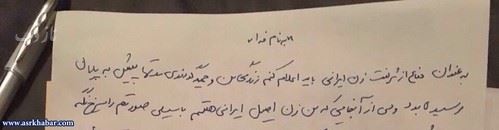 «بنام خدا»
به عنوان مدافع از شرافت زن ایرانی باید اعلام کنم زندگی من و حمید گودرزی مدتها پیش به پایان
رسیده بود ولی از آنجایی که من زن اصیل ایرانی هستم با سیلی صورتم را سرخ نگه
www.asrkhabar.com